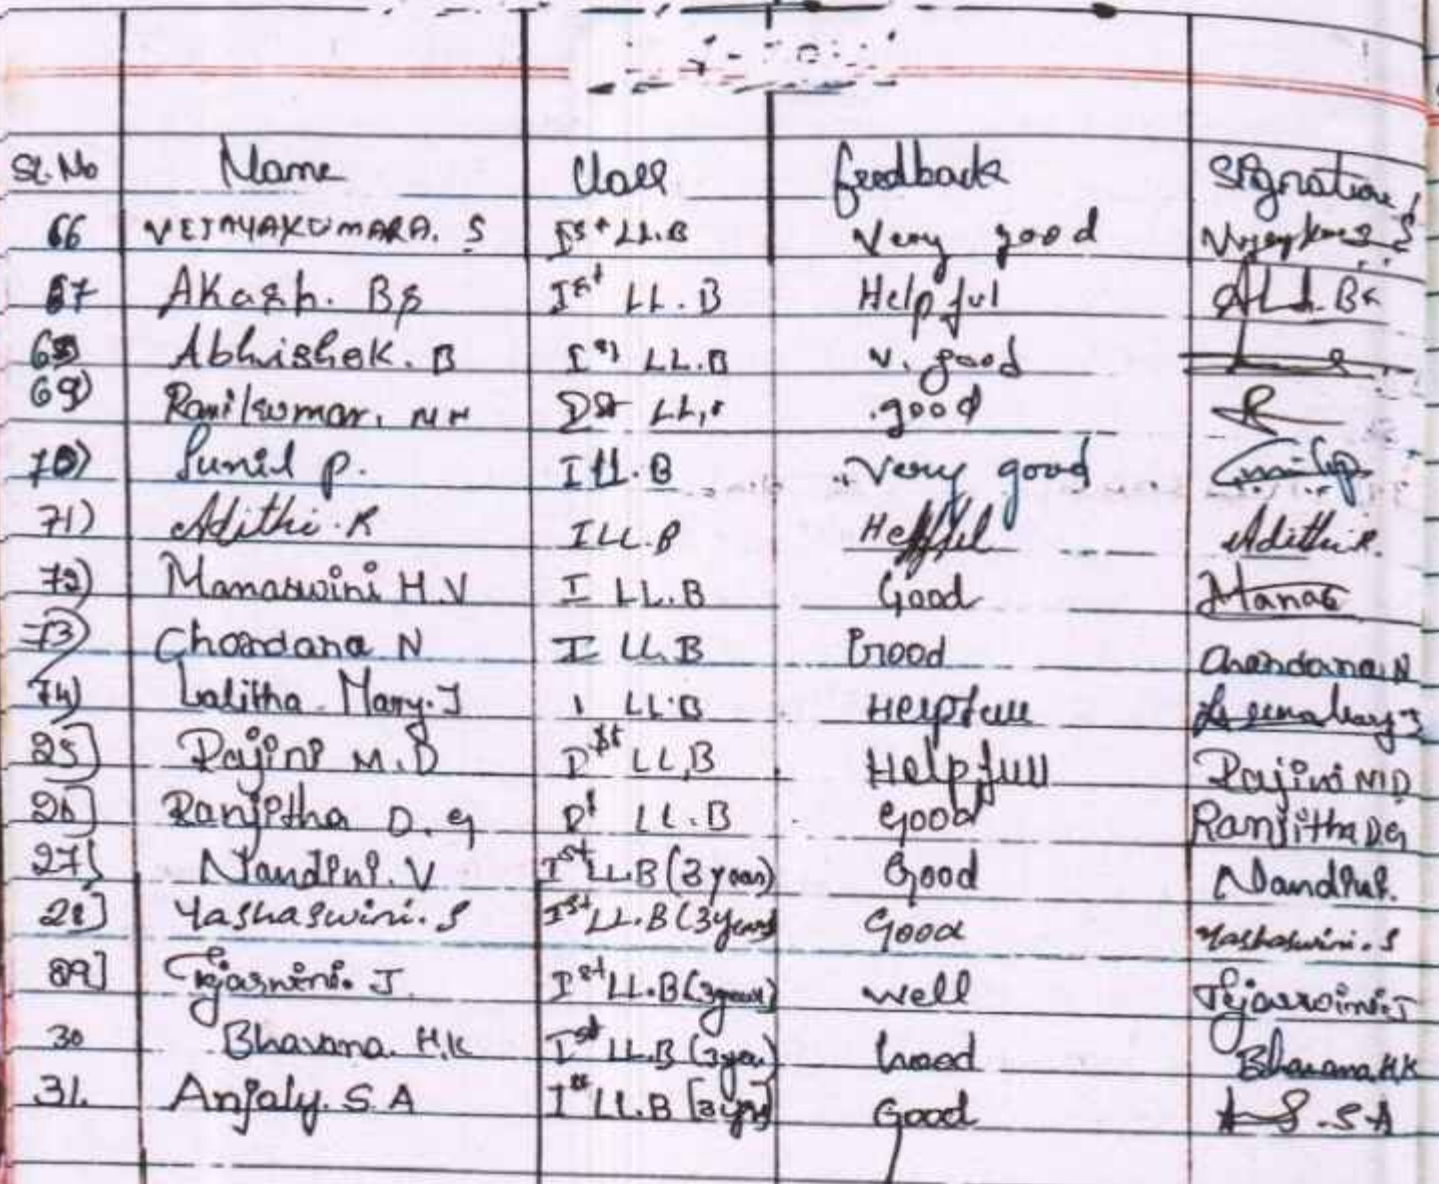 Sl. No Name Class feedback Signature
66 VEJAYAKUMARA. S Ist LL.B Very good
67 Akash. Bs Ist LL.B Helpful
68) Abhishek. B Ist LL.B v. good
69) Ravikumar. Ist good R
70) Sunil P. I LL.B Very good
71) Adithi. R I LL.B Helpful Adithi R.
72) Manaswini H.V I LL.B Good Manas
73) Chandana N I LL.B Good Chandana N
74) Lalitha Mary. J I LL.B Helpfull
25] Rajini M.D Ist LL.B Helpfull Rajini M D
26] Ranjitha D. G Ist LL.B Good Ranjitha D G
27] Nandini. V Ist LL.B (3 years) Good Nandini.
28] Yashaswini. S Ist LL.B (3 years) Good Yashaswini. S
29] Tejaswini. J Ist LL.B (3 years) well Tejaswini. J
30 Bhavana. H.K Ist LL.B (3 year) Good Bhavana. H.K
31. Anjaly. S. A Ist LL.B [3 yrs] Good